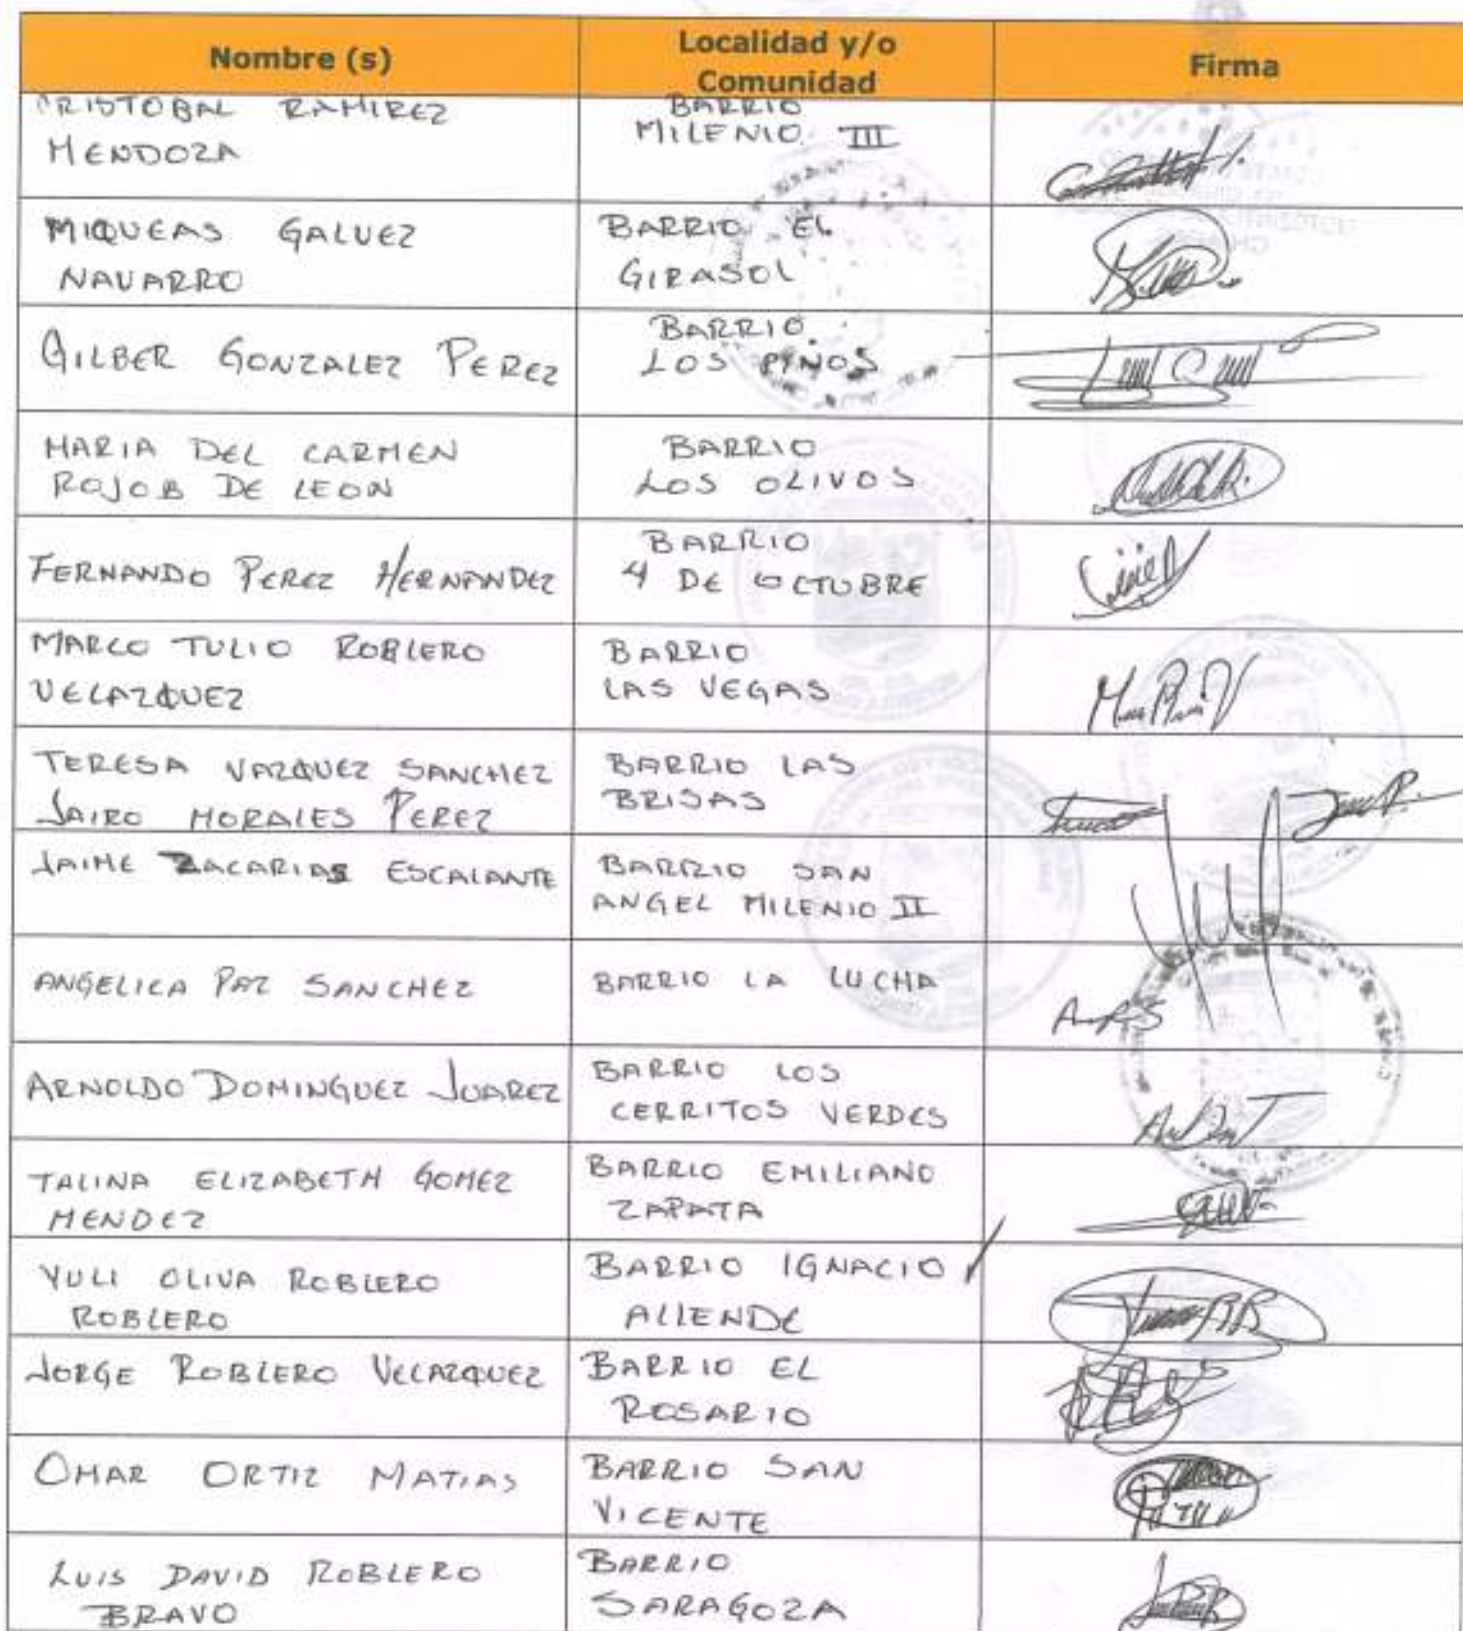 Nombre (s)
Localidad y/o
Comunidad
Firma
CRISTOBAL RAMIREZ
MENDOZA
BARRIO
MILENIO III
MIQUEAS GALVEZ
NAVARRO
BARRIO EL
GIRASOL
GILBER GONZALEZ PEREZ
BARRIO
LOS PINOS
MARIA DEL CARMEN
ROJOB DE LEON
BARRIO
LOS OLIVOS
FERNANDO PEREZ HERNANDEZ
BARRIO
4 DE OCTUBRE
MARCO TULIO ROBLERO
VELAZQUEZ
BARRIO
LAS VEGAS
TERESA VAZQUEZ SANCHEZ
JAIRO MORALES PEREZ
BARRIO LAS
BRISAS
JAIME ZACARIAS ESCALANTE
BARRIO SAN
ANGEL MILENIO II
ANGELICA PAZ SANCHEZ
BARRIO LA LUCHA
ARNOLDO DOMINGUEZ JUAREZ
BARRIO LOS
CERRITOS VERDES
TALINA ELIZABETH GOMEZ
MENDEZ
BARRIO EMILIANO
ZAPATA
YULI OLIVA ROBLERO
ROBLERO
BARRIO IGNACIO
ALLENDE
JORGE ROBLERO VELAZQUEZ
BARRIO EL
ROSARIO
OMAR ORTIZ MATIAS
BARRIO SAN
VICENTE
LUIS DAVID ROBLERO
BRAVO
BARRIO
SARAGOZA